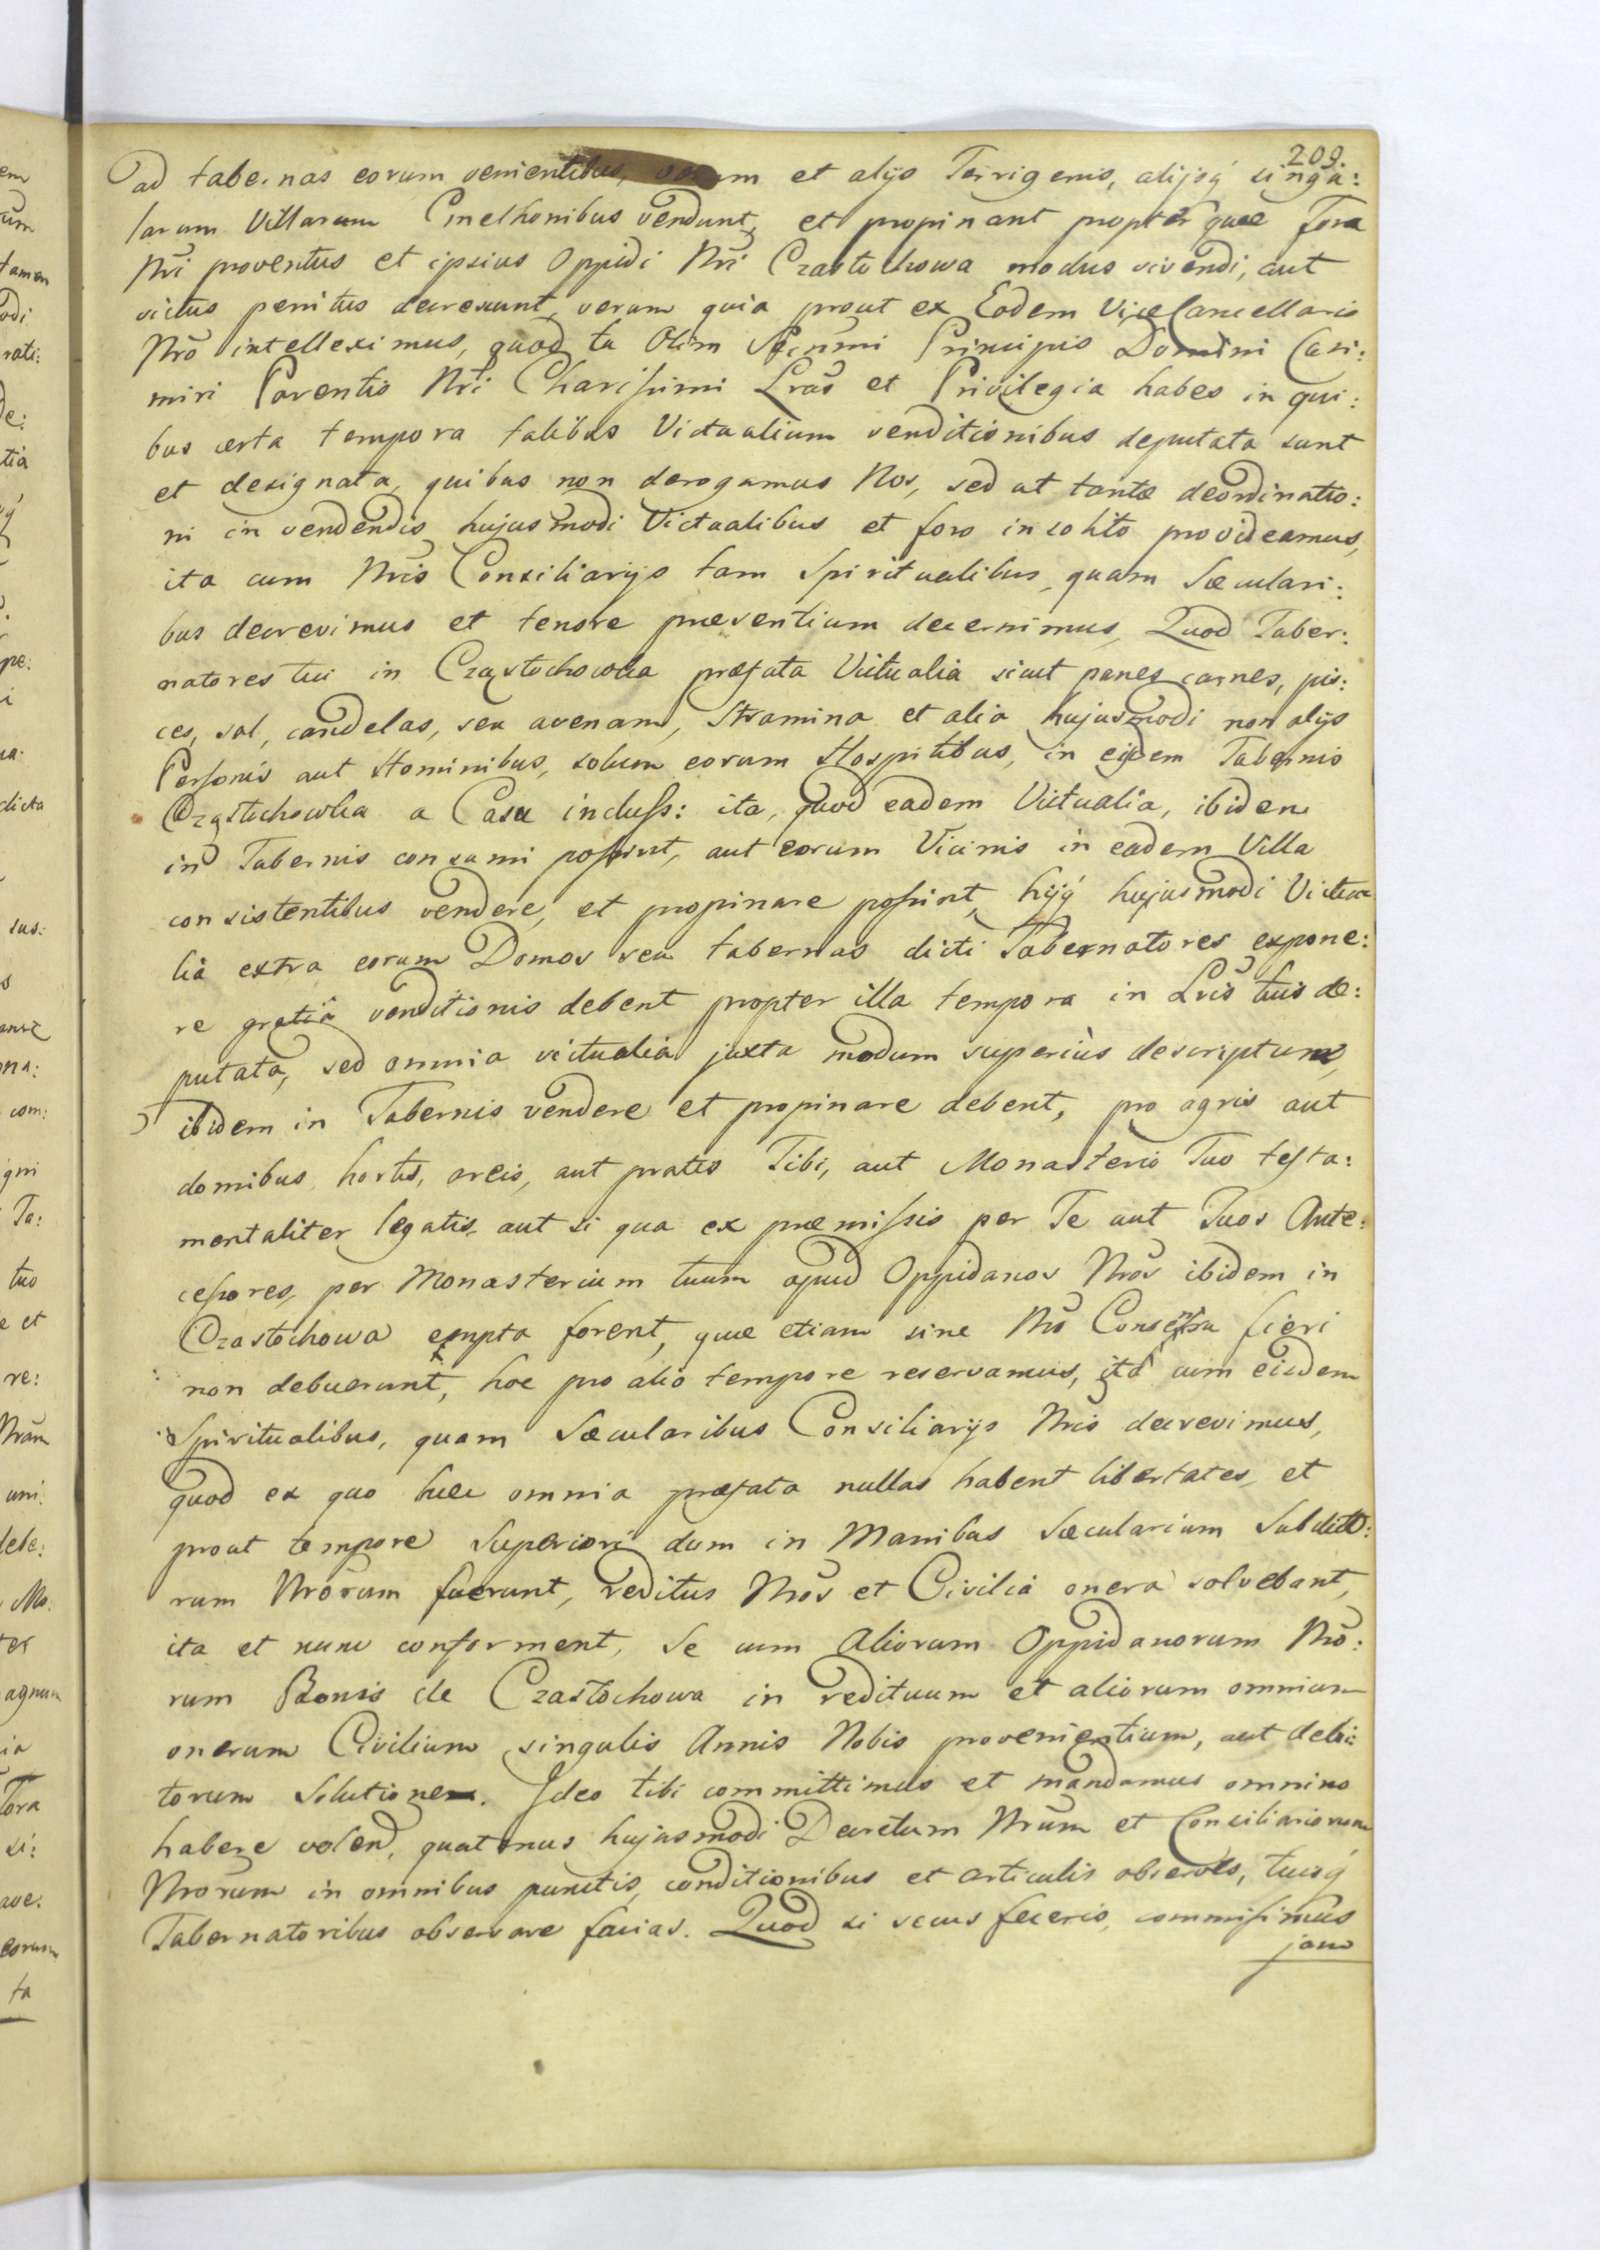 209.
ad tabernas eorum venientibus, verum et alijs Terrigenis, alijsq́ singu:
larum Villarum Cmethonibus vendunt, et propinant propter quae fora
Nri proventus et ipsius Oppidi Nri Czastochowa modus vivendi, aut
victus penitus decrescunt, verum quia prout ex Eodem ViceCancellario
Nrõ intelleximus, quod tu Olim Serñmi Principis Domini Casi:
miri Parentis Nri Charissimi Lras et Privilegia habes in qui:
bus certa tempora talibus Victualium venditionibus deputata sunt
et designata, quibus non derogamus Nos, sed ut tantae deordinatio:
ni in vendendis hujusmodi Victualibus et foro insolito provideamus,
ita cum Nris Consiliarijs tam Spiritualibus, quam Saeculari:
bus decrevimus et tenore praesentium decernimus, Quod Taber:
natores tui in Częstochowka praefata Victualia sicut panes carnes, pis:
ces, sal, candelas, seu avenam, Stramina et alia hujusmodi non alijs
Personis aut Hominibus, solum eorum Hospitibus, in eisdem Tabernis
Częstochowka a Casu incluss: ita, quod eadem Victualia, ibidem
in Tabernis consumi possint, aut eorum Vicinis in eadem Villa
consistentibus vendere, et propinare possint, hijq́ hujusmodi Victua
lia extra eorum Domos seu tabernas dicti Tabernatores expone:
re gratiâ venditionis debent propter illa tempora in Lris tuis de:
putata, sed omnia victualia juxta modum superiùs descriptum,
ibidem in Tabernis vendere et propinare debent, pro agris aut
domibus, hortis, areis, aut pratis Tibi, aut Monasterio Tuo testa:
mentaliter legatis, aut si qua ex praemissis per Te aut Tuos Ante:
cessores, per Monasterium tuum apud Oppidanos Nros ibidem in
Czastochowa empta forent, quae etiam sine Nro Consensu fieri
non debuerunt, hoc pro alio tempore reservamus, ita cum eisdem
Spiritualibus, quam Saecularibus Consiliarijs Nris decrevimus,
quod ex quo haec omnia praefata nullas habent libertates, et
prout tempore Superiori dum in Manibus Saecularium Subdito:
rum Nrorum fuerunt, reditus Nros et Civilia onera solvebant,
ita et nunc conforment, Se cum Aliorum Oppidanorum Nro:
rum Bonis de Czastochowa in redituum et aliorum omnium
onerum Civilium singulis Annis Nobis provenientium, aut debi:
torum Solutione. Ideo tibi committimus et mandamus omnino
habere volend, quatenus hujusmodi Decretum Nrum et Consiliariorum
Nrorum in omnibus punctis, conditionibus et articulis observes, tuisq́
Tabernatoribus observare facias. Quod si secus feceris, commisimus
jam